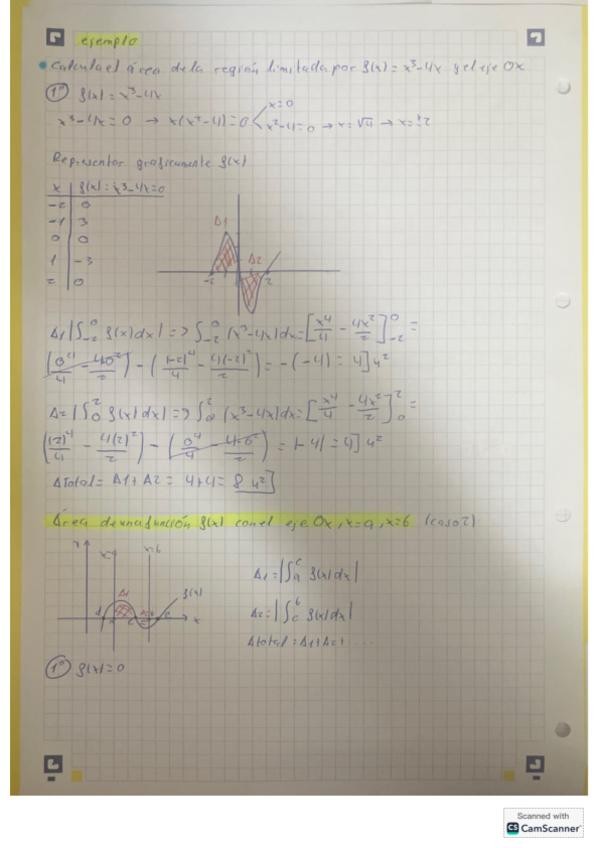 ejemplo
• Calcula el área de la región limitada por f(x) = x³-4x y el eje Ox
1º f(x) = x³-4x
x³-4x = 0 → x(x²-4) = 0 < x = 0
x²-4 = 0 → x = √4 → x = ±2
Representar graficamente f(x)
x | f(x) = x³-4x = 0
-2 | 0
-1 | 3
0 | 0
1 | -3
2 | 0
A1
A2
-2
2
A1 |∫₋₂⁰ f(x)dx| => ∫₋₂⁰ (x³-4x)dx = [x⁴/4 - 4x²/2]₋₂⁰ =
(0⁴/4 - 4·0²/2) - ((-2)⁴/4 - 4(-2)²/2) = -(-4) = 4] u²
A2 |∫₀² f(x)dx| => ∫₀² (x³-4x)dx = [x⁴/4 - 4x²/2]₀² =
((2)⁴/4 - 4(2)²/2) - (0⁴/4 - 4·0²/2) = |-4| = 4] u²
A Total = A1 + A2 = 4+4 = 8 u²]
Área de una función f(x) con el eje Ox, x=a, x=b (caso 2)
x=b
A1
f(x)
x
A1 = |∫ₐᶜ f(x)dx|
A2 = |∫cᵇ f(x)dx|
A total = A1+A2+ ...
1º f(x) = 0
Scanned with
CS CamScanner